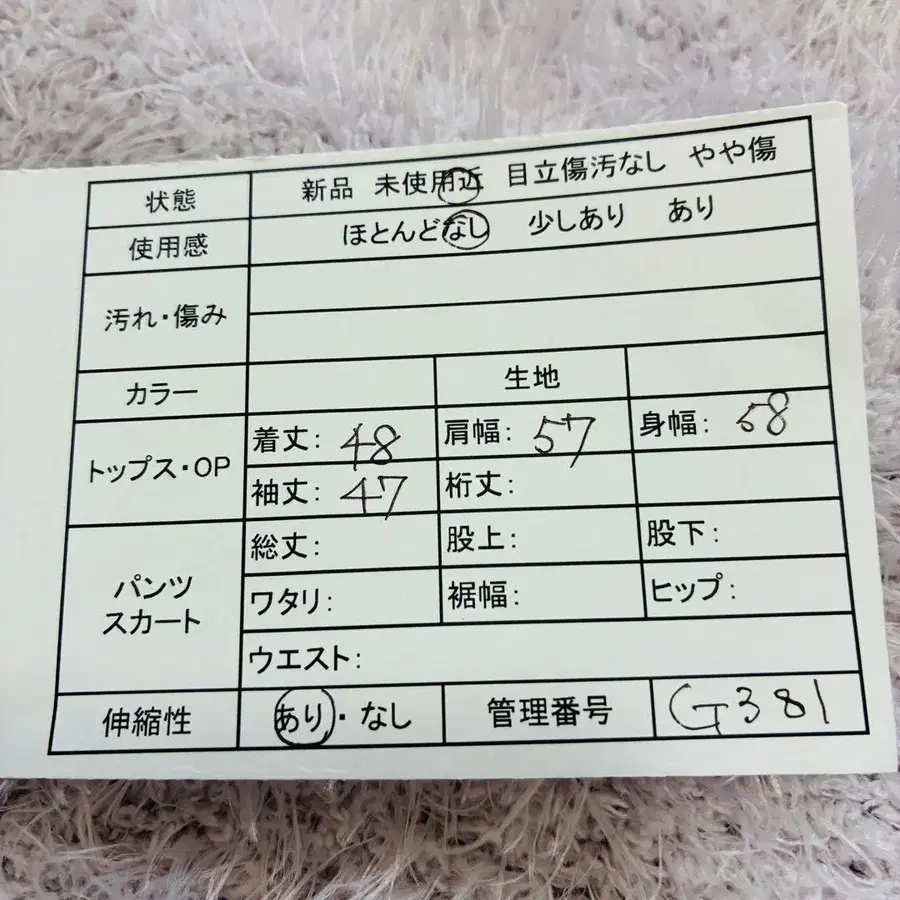 状態 新品 未使用近 目立傷汚なし やや傷
使用感 ほとんどなし 少しあり あり
汚れ・傷み
カラー 生地
トップス・OP 着丈: 48 肩幅: 57 身幅: 58
袖丈: 47 裄丈:
パンツ
スカート
総丈: 股上: 股下:
ワタリ: 裾幅: ヒップ:
ウエスト:
伸縮性 あり・なし 管理番号 G381